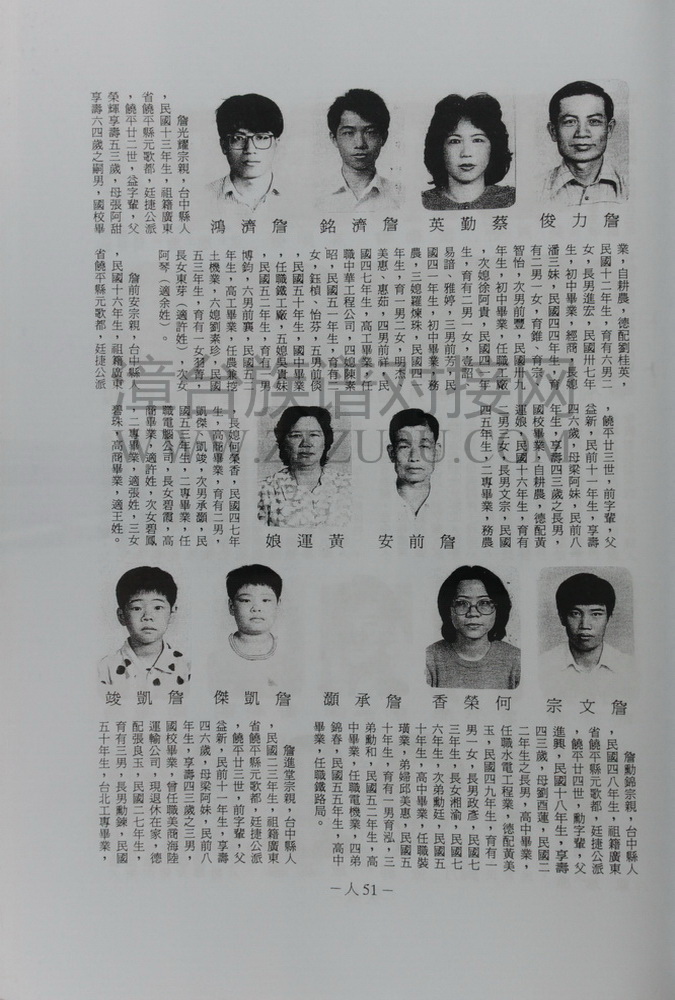 詹力俊
蔡勤英
詹濟銘
詹濟鴻
詹光耀宗親，台中縣人
，民國十三年生，祖籍廣東
省饒平縣元歌都，廷捷公派
，饒平廿二世，益字輩，父
榮輝享壽五三歲，母張阿甜
享壽六四歲之嗣男，國校畢
業，自耕農，德配劉桂英，
民國十二年生，育有六男二
女，長男進宏，民國卅七年
生，初中畢業，經商，長媳
潘三妹，民國四四年生，育
有二男一女，育錐、育宗、
智怡，次男前豐，民國卅九
年生，初中畢業，任職工廠
，次媳徐阿貴，民國四二年
生，育有二男一女，壹韶、
易諳、雅婷，三男前芳，民
國四一年生，初中畢業，務
農，三媳羅煉珠，民國四七
年生，育一男二女，明杰、
美惠、惠茹，四男前祥，民
國四七年生，高工畢業，任
職中華工程公司，四媳陳素
昭，民國五一年生，育有二
女，鈺楨、怡芬，五男前倓
，民國五十年生，國中畢業
，任職鐵工廠，五媳吳貴妹
，民國五二年生，育有一男
博鈞，六男前襄，民國五一
年生，高工畢業，任農兼挖
土機業，六媳劉素珍，民國
五三年生，育有一女，
長女東芽（適許姓），次女
阿琴（適余姓）。
詹前安宗親，台中縣人
，民國十六年生，祖籍廣東
省饒平縣元歌都，廷捷公派
，饒平廿三世，前字輩，父
益新，民前十一年生，享壽
四六歲，母梁阿妹，民前八
年生，享壽四三歲之長男，
國校畢業，自耕農，德配黃
運娘，民國十六年生，育有
二男三女，長男文宗，民國
四五年生，二專畢業，務農
詹前安
黃運娘
，長媳何榮香，民國四七年
生，高商畢業，育有二男，
凱傑、凱竣，次男承灝，民
國五三年生，二專畢業，任
職電腦公司，長女碧霞，高
商畢業，適許姓，次女碧鳳
，二專畢業，適張姓，三女
碧珠，高商畢業，適王姓。
詹文宗
何榮香
詹承灝
詹凱傑
詹凱竣
詹勳錦宗親，台中縣人
，民國四八年生，祖籍廣東
省饒平縣元歌都，廷捷公派
，饒平廿四世，勳字輩，父
進興，民國十八年生，享壽
四三歲，母劉酉蓮，民國二
二年生之長男，高中畢業，
任職水電工程業，德配黃美
玉，民國四九年生，育有一
男二女，長男政彥，民國七
三年生，長女湘渝，民國七
六年生，次弟勳廷，民國五
十年生，高中畢業，任職裝
璜業，弟婦邱美惠，民國五
十年生，育有一男育泓，三
弟勳和，民國五二年生，高
中畢業，任職電機業，四弟
錦春，民國五五年生，高中
畢業，任職鐵路局。
詹進堂宗親，台中縣人
，民國二三年生，祖籍廣東
省饒平縣元歌都，廷捷公派
，饒平廿三世，前字輩，父
益新，民前十一年生，享壽
四六歲，母梁阿妹，民前八
年生，享壽四三歲之三男，
國校畢業，曾任職美商海陸
運輸公司，現退休在家，德
配張良玉，民國二七年生，
育有三男，長男勳鍊，民國
五十年生，台北工專畢業，
－人 51－
漳台族谱对接网
WWW.ZTZUPU.COM